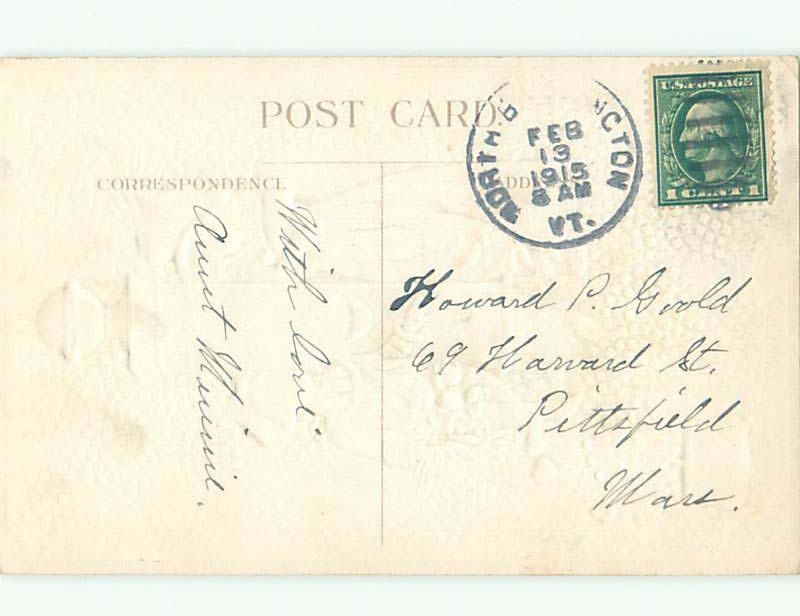 POST CARD.
CORRESPONDENCE
ADD
NORTH B NGTON
FEB
13
1915
8 AM
VT.
U.S. POSTAGE
1 CENT 1
With love
Aunt Minnie.
Howard P. Goold
69 Harvard St.
Pittsfield
Mass.